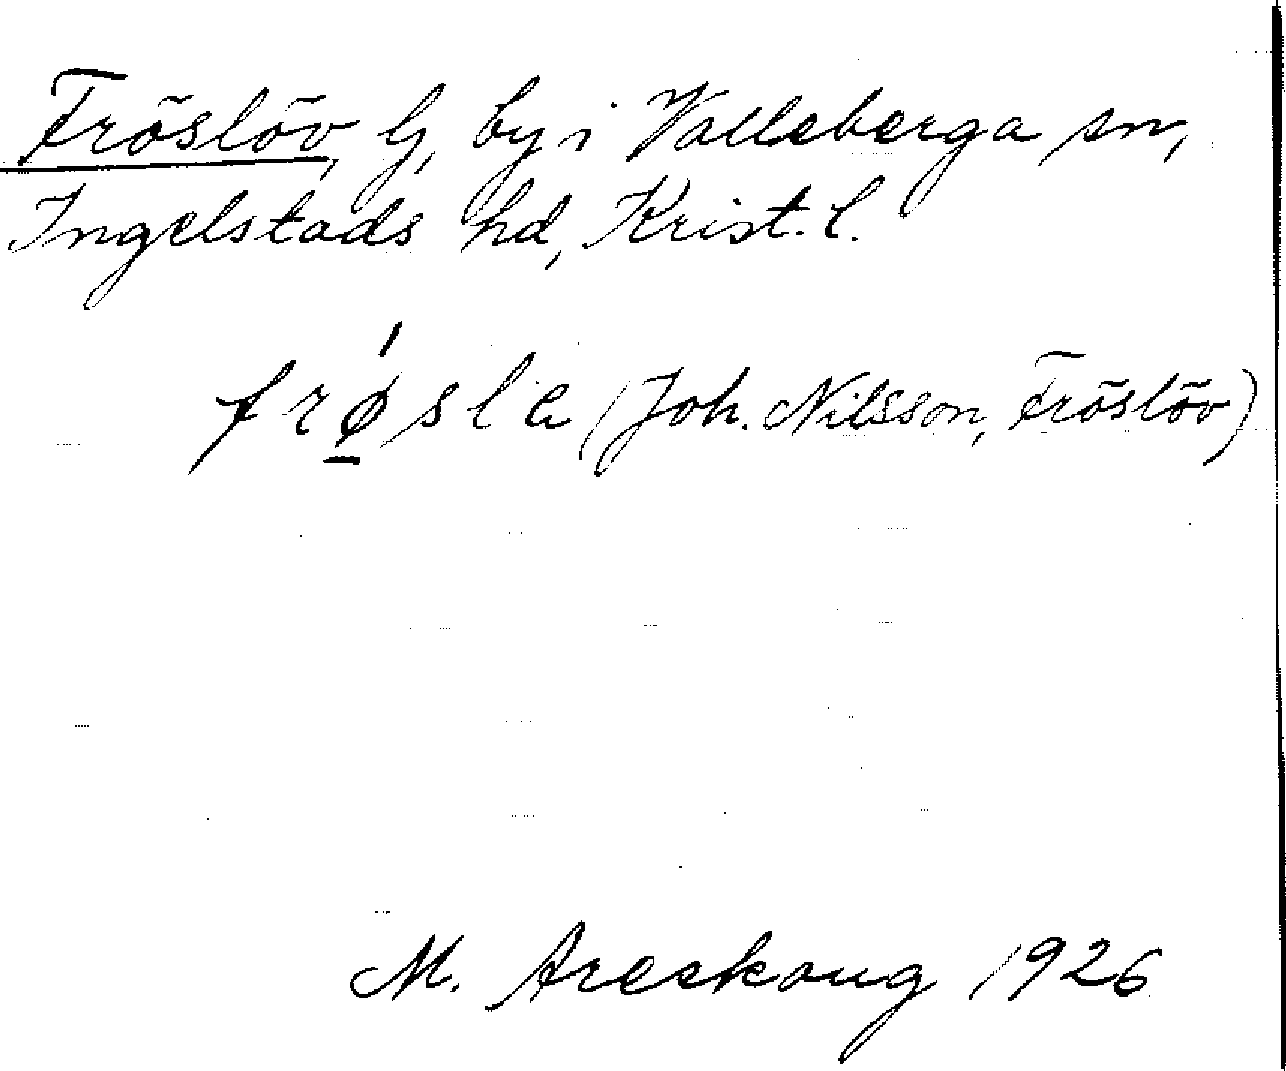 Fröslöv, G, by i Valleberga sn,
Ingelstads hd, Krist. l.
frǿ̲sla (Joh. Nilsson, Fröslöv)
M. Areskoug 1926